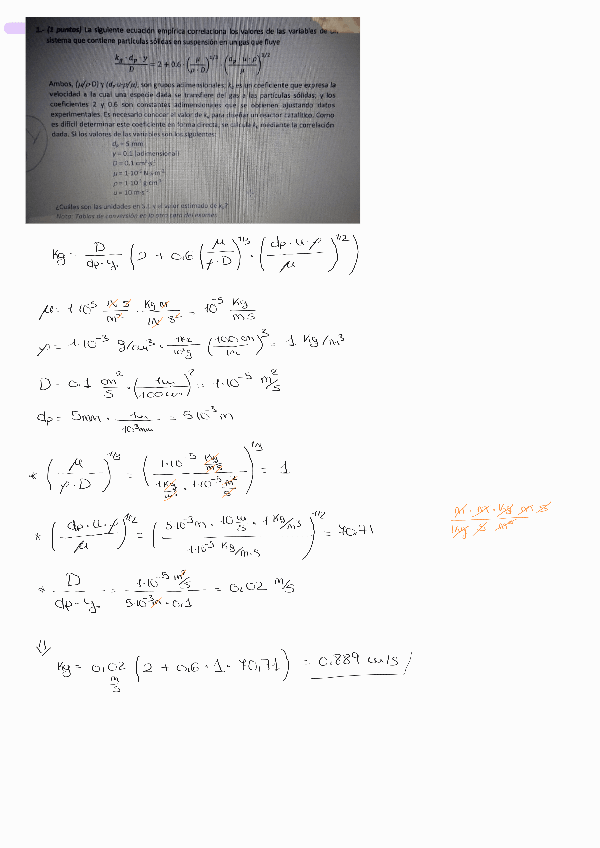 1.- (2 puntos) La siguiente ecuación empírica correlaciona los valores de las variables de un
sistema que contiene partículas sólidas en suspensión en un gas que fluye
kg · dp · y / D = 2 + 0.6 · (μ / ρ · D)^1/3 · (dp · u · ρ / μ)^1/2
Ambos, (μ/ρ·D) y (dp·u·ρ/μ), son grupos adimensionales; kg es un coeficiente que expresa la
velocidad a la cual una especie dada se transfiere del gas a las partículas sólidas; y los
coeficientes 2 y 0.6 son constantes adimensionales que se obtienen ajustando datos
experimentales. Es necesario conocer el valor de kg para diseñar un reactor catalítico. Como
es difícil determinar este coeficiente en forma directa, se calcula kg mediante la correlación
dada. Si los valores de las variables son los siguientes:
dp = 5 mm
y = 0.1 (adimensional)
D = 0.1 cm²
μ = 1·10⁻⁵ N·s·m⁻²
ρ = 1·10⁻³ g·cm⁻³
u = 10 m·s⁻¹
¿Cuáles son las unidades en S.I. y el valor estimado de kg?
Nota: Tablas de conversión en la otra cara del examen
Kg = D / dp·y (2 + 0,6 (μ / ρ·D)^1/3 · (dp·u·ρ / μ)^1/2)
μ = 1·10⁻⁵ N·s / m² · Kg m / N s² = 10⁻⁵ Kg / m s
ρ = 1·10⁻³ g/cm³ · 1Kg / 10³g (100cm / 1m)³ = 1 Kg/m³
D = 0.1 cm² / s · (1m / 100cm)² = 1·10⁻⁵ m²/s
dp = 5mm · 1m / 10³mm = 5·10⁻³ m
* (μ / ρ·D)^1/3 = (1·10⁻⁵ Kg/m s / 1 Kg/m³ · 1·10⁻⁵ m²/s)^1/3 = 1
* (dp·u·ρ / μ)^1/2 = (5·10⁻³m · 10 m/s · 1 Kg/m³ / 1·10⁻⁵ Kg/m·s)^1/2 = 70,71
m · m · Kg · m · s / Kg · s · m³
* D / dp·y = 1·10⁻⁵ m²/s / 5·10⁻³m · 0,1 = 0,02 m/s
⇓
Kg = 0,02 m/s (2 + 0,6 · 1 · 70,71) = 0.889 m/s